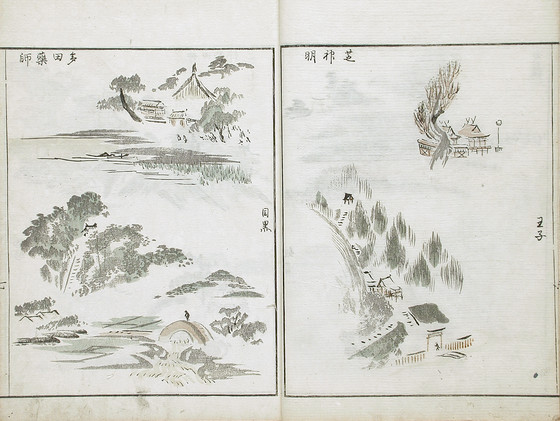 芝神明
王子
多田藥師
目黒